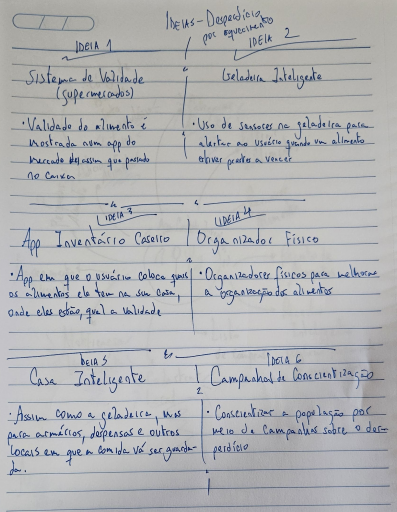 IDEIAS - Desperdício
por esquecimento
IDEIA 1
Sistema de Validade
(supermercados)
• Validade do alimento é
mostrada num app do
mercado assim que passado
no caixa
IDEIA 2
Geladeira Inteligente
• Uso de sensores na geladeira para
alertar ao usuário quando um alimento
estiver prestes a vencer
IDEIA 3
App Inventário Caseiro
• App em que o usuário coloca quais
os alimentos ele tem na sua casa,
onde eles estão, qual a validade
IDEIA 4
Organizador Físico
• Organizadores físicos para melhorar
a organização dos alimentos
IDEIA 5
Casa Inteligente
• Assim como a geladeira, mas
para armários, despensas e outros
locais em que a comida vá ser guarda-
da.
IDEIA 6
Campanhas de Conscientização
• Conscientizar a população por
meio de campanhas sobre o des-
perdício